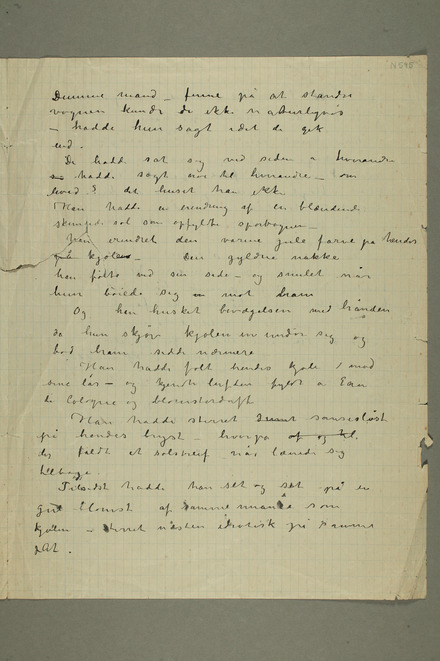 N 595
Dumme mand – finne på at standse
vognen kunde de ikke naturligvis
– hadde hun sagt idet de gik
ind.
De hadde sat sig ved siden a hverandre
hadde sagt noe til hverandre – om
hvad? det husket han ikke
Han hadde en erindring af en blændende
sol som opfyldte sporvognen –
Han erindret den varme gule farve på hendes
kjole – den gyldne nakke
han følte ved sin side – og smilet når
hun bøide sig mot ham
Og han husket bevægelsen med hånden
da hun skjøv kjolen ind under sig og
bød ham sidde nærmere
Han hadde følt hendes kjole mod
sine lår – og kjendt luften fyldt a Eau
de Cologne og blomsterduft
Han hadde stirret sanseløst
på hendes bryst – hvorpå
der faldt et solstreif når lænede sig
tilbage.
Tilsidst hadde han set og set på en
gul Blomst af samme som
kjolen – stirret næsten idiotisk på samme
plet.